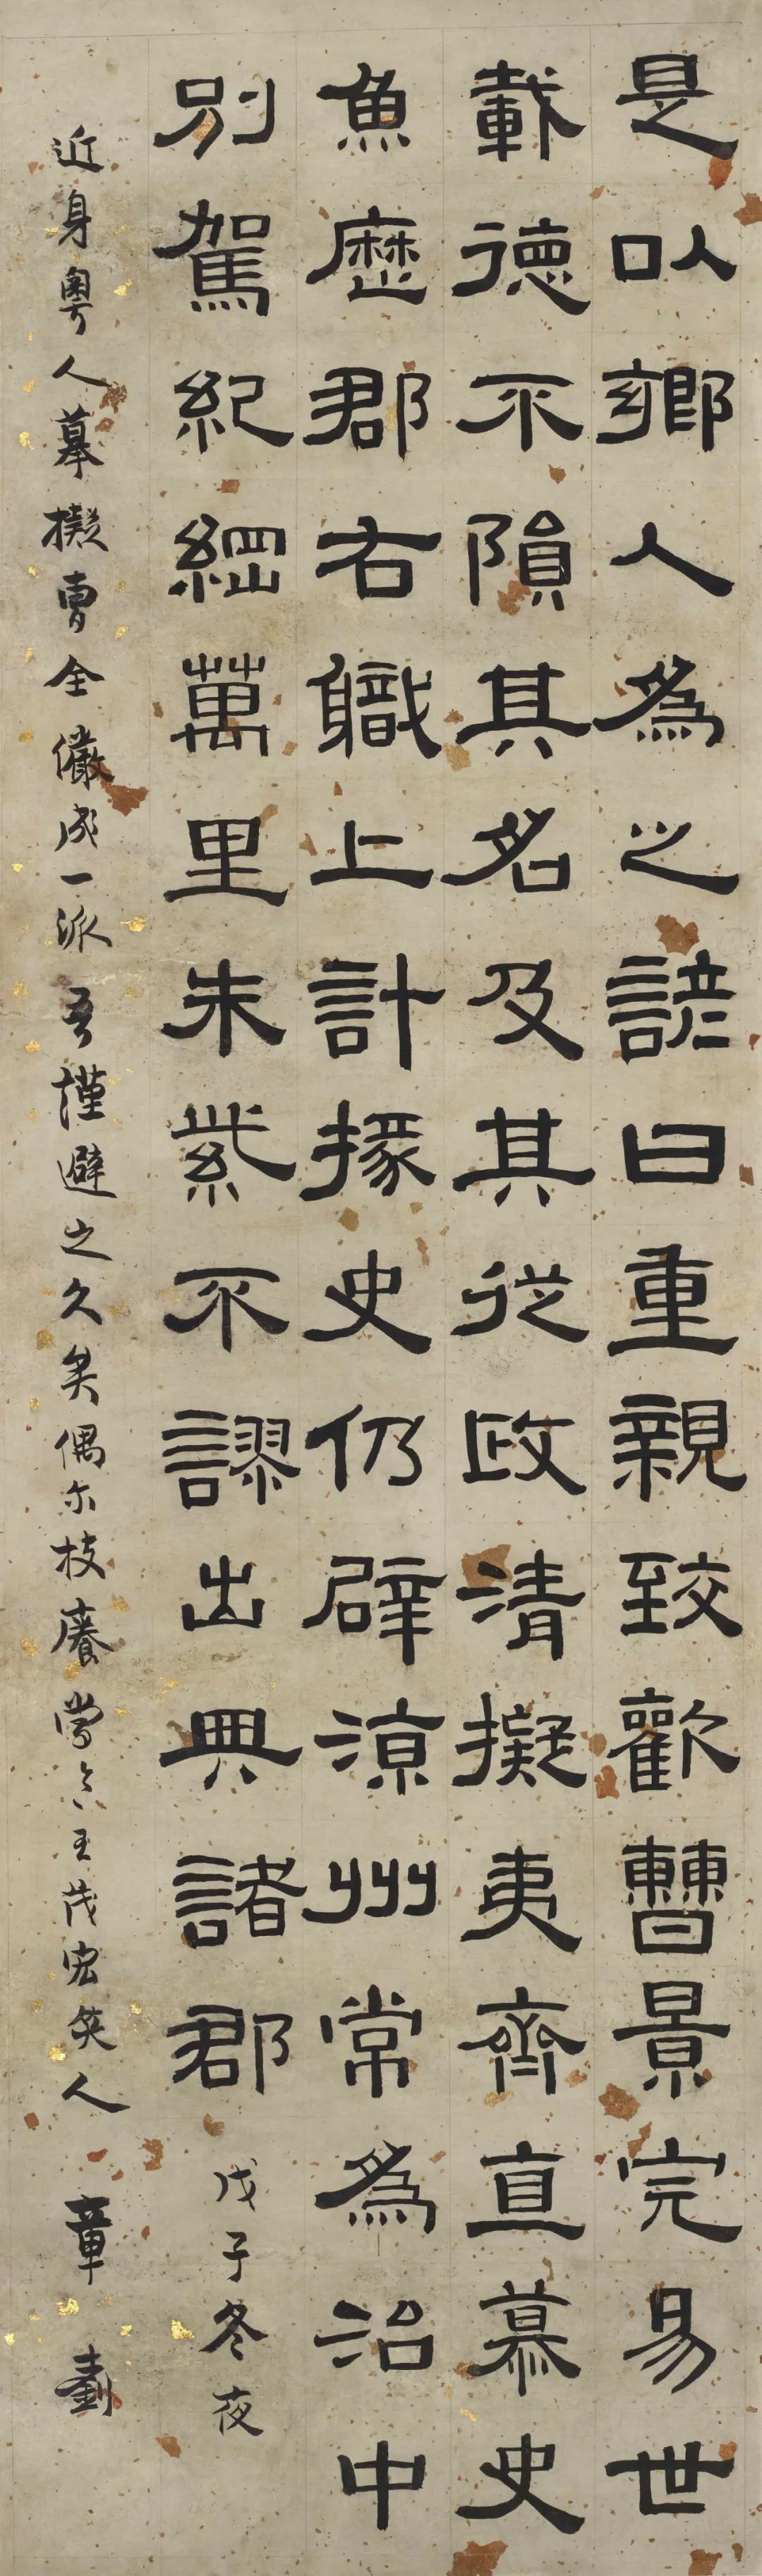 是以鄉人為之諺曰重親致歡曹景完易世
載德不隕其名及其從政清擬夷齊直慕史
魚歷郡右職上計掾史仍辟涼州常為治中
別駕紀綱萬里朱紫不謬出典諸郡
戊子冬夜
近身粵人摹擬曹全儼成一派吾謹避之久矣偶尔技癢當令王茂宏笑人
章